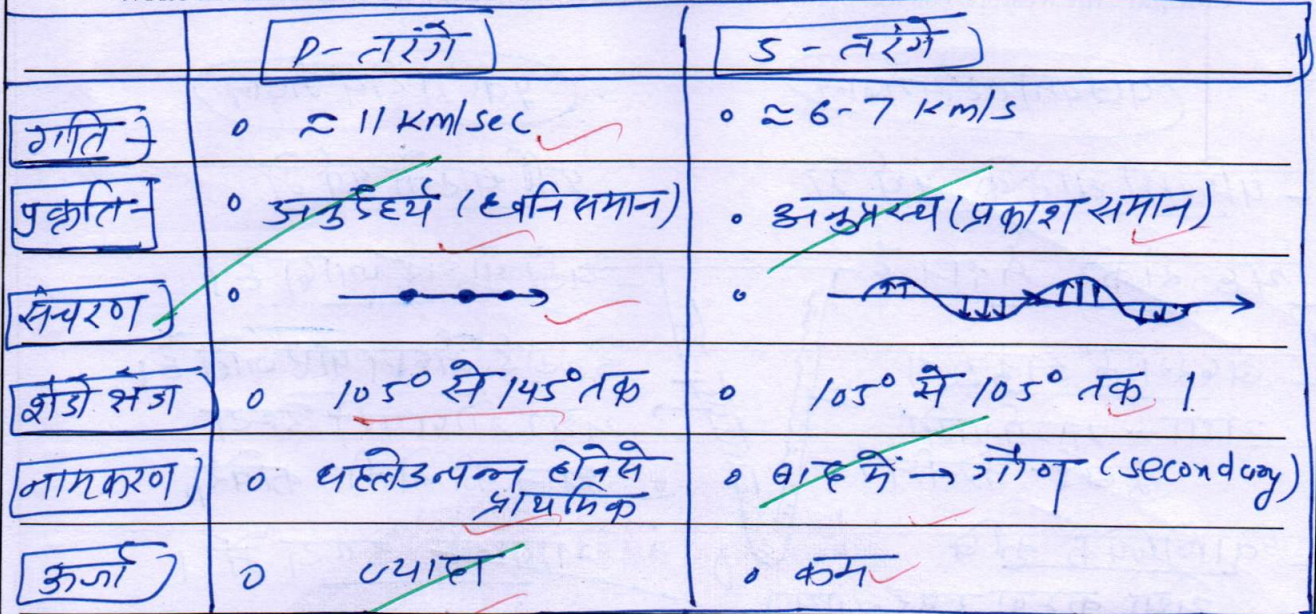 P- तरंगे S - तरंगे
गति - ० ≈ 11 Km/sec ० ≈ 6-7 Km/s
प्रकृति - ० अनुदैर्ध्य (ध्वनि समान) ० अनुप्रस्थ (प्रकाश समान)
संचरण ० ०
शैडो जोन ० 105° से 145° तक ० 105° से 105° तक ।
नामकरण ० पहले उत्पन्न होने से ० बाद में → गौण (secondary)
प्राथमिक
ऊर्जा ० ज्यादा ० कम